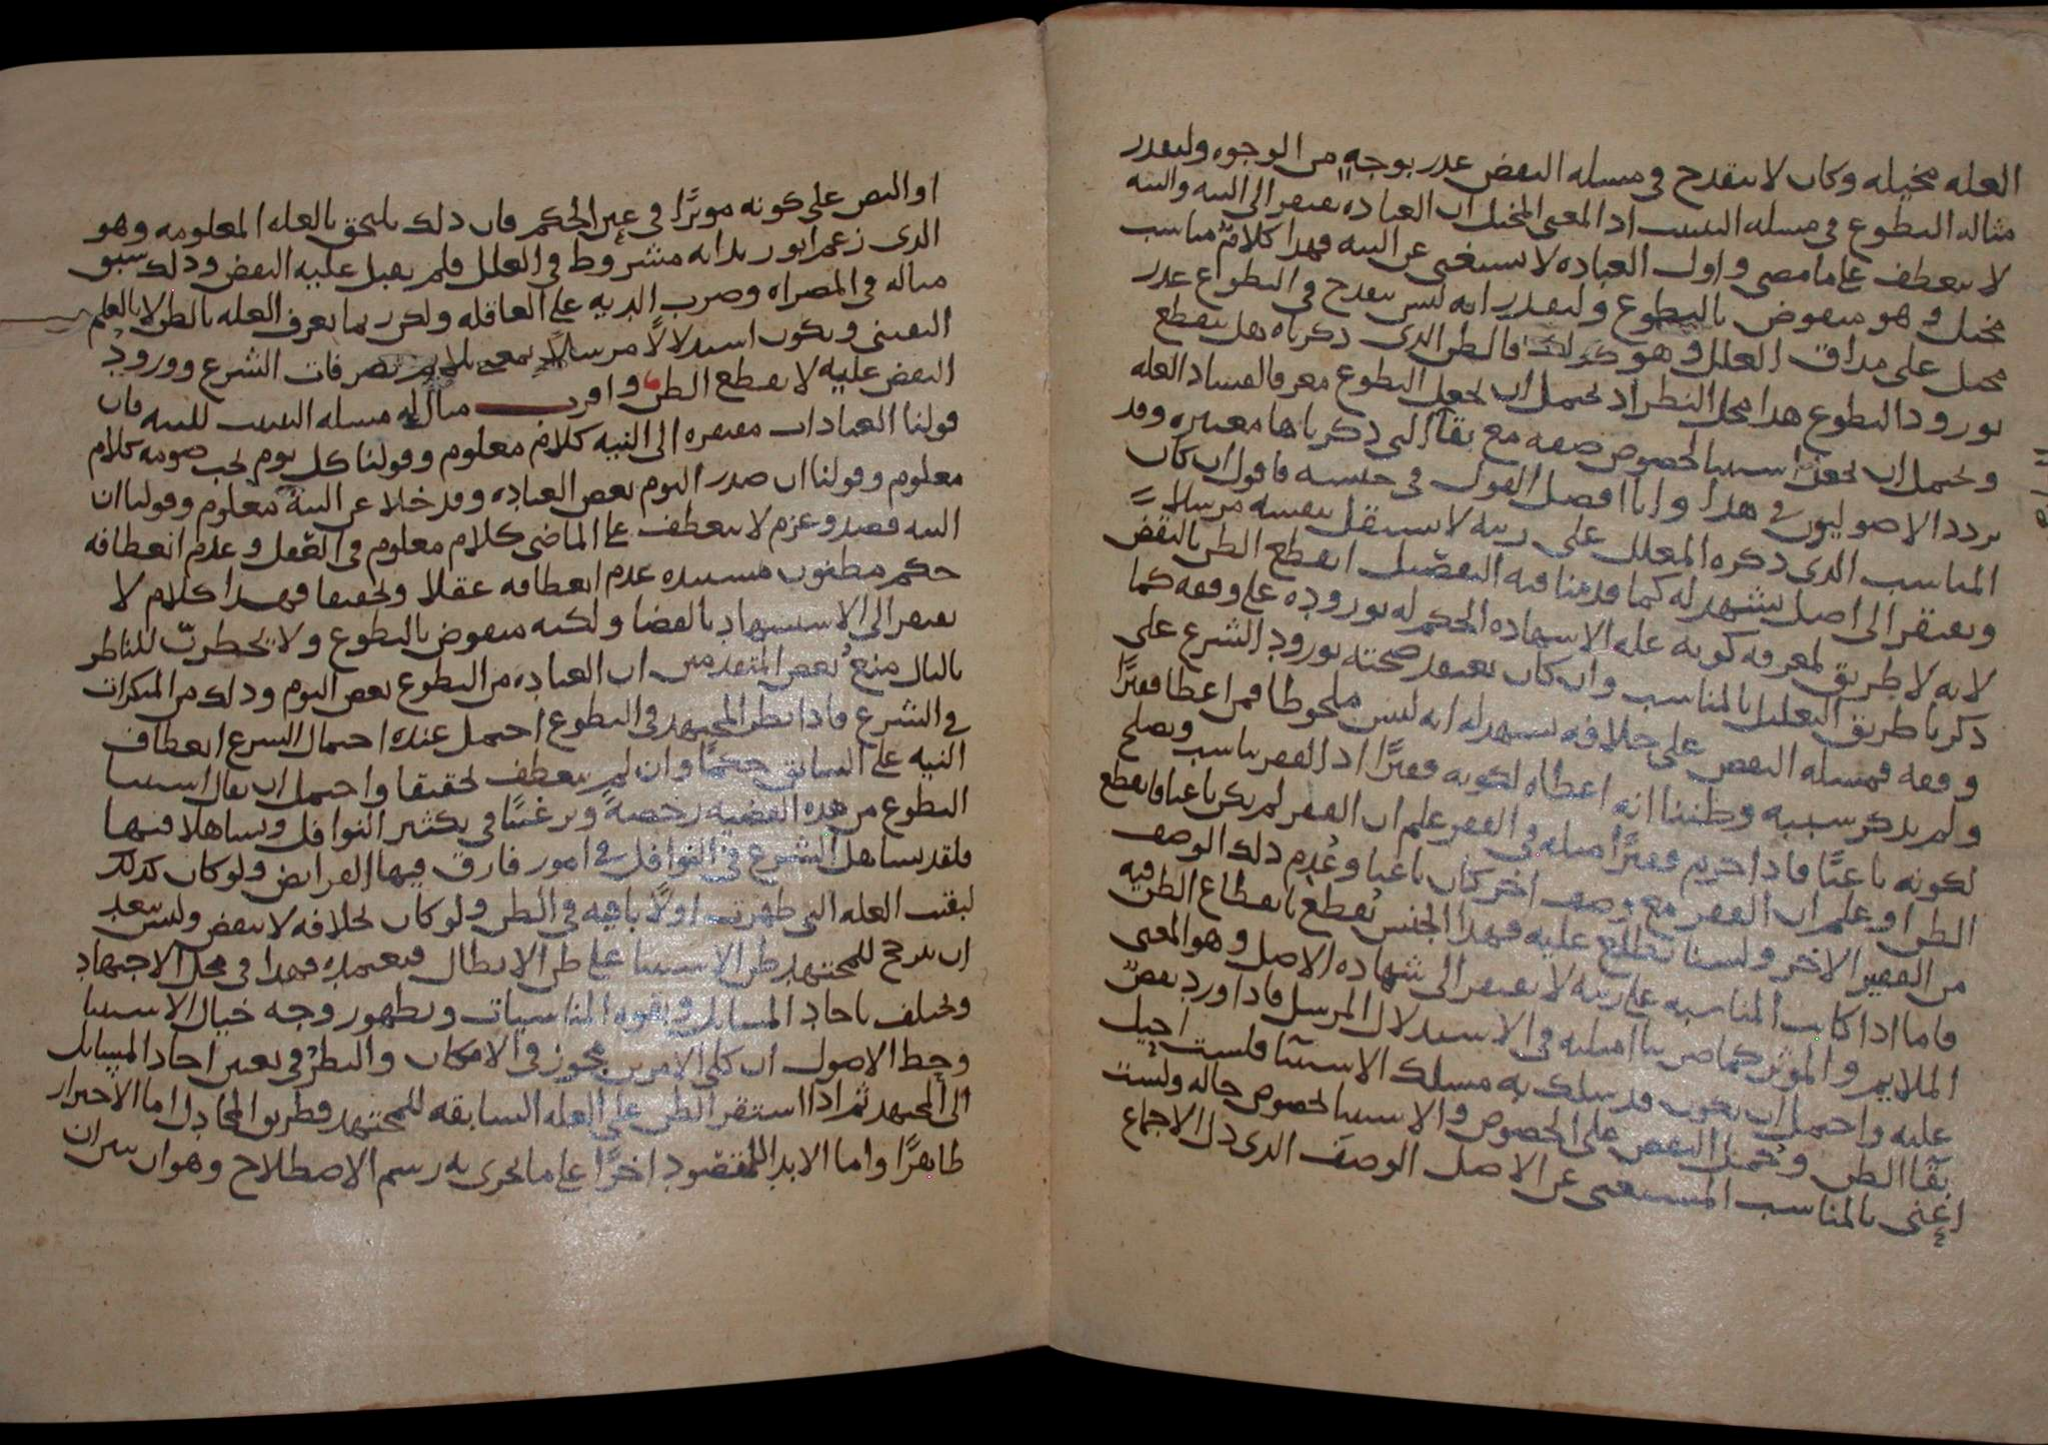 العله مخيله وكان لا ينقدح في مسله النقض عذر بوجه من الوجوه وليقدر
مثاله التطوع في مسله التبييت اذ المعنى المخيل ان العباده تفتقر الى النيه والنيه
لا تنعطف على ما مضى واول العباده لا يستغنى عن النيه فهذا كلام مناسب
مخيل وهو منقوض بالتطوع وليقدر انه ليس ينقدح في التطوع عذر
مخيل على مذاق العلل وهو كذلك فالظن الذي ذكرناه هل ينقطع
بورود التطوع هذا محل النظر اذ يحتمل ان يجعل التطوع معرفا لفساد العله
ويحتمل ان يجعل استثنا لخصوص صفه مع بقا التي ذكرناها معتبره وقد
تردد الاصوليون في هذا وانا افصل القول في جنسه فاقول ان كان
المناسب الذي ذكره المعلل على رتبه لا يستقل بنفسه مرسلا
ويفتقر الى اصل يشهد له كما قدمنا فيه التفصيل انقطع الظن بالنقض
لانه لا طريق لمعرفه كونه عله الا شهاده الحكم له بوروده على وفقه كما
ذكرنا طريق التعليل بالمناسب وان كان يعتقد صحته بورود الشرع على
وفقه فمسله النقض على خلافه تشهد له انه ليس ملحوظا فمن اعطا فقيرا
ولم يذكر سببه وظننا انه اعطاه لكونه فقيرا اذ الفقر يناسب ويصلح
لكونه باعثا فاذا حرم فقيرا مثله في الفقر علم ان الفقر لم يكن باعثا فانقطع
الظن او علم ان الفقر مع وصف اخر كان باعثا وعدم ذلك الوصف
من الفقير الاخر ولسنا نطلع عليه فهذا الجنس يقطع بانقطاع الظن فيه
فاما اذا كانت المناسبه على رتبه لا تفتقر الى شهاده الاصل وهو المعنى
الملايم والموثر كما ضربنا امثلته في الاستدلال المرسل فاذا ورد نقض
عليه واحتمل ان يكون قد سلك به مسلك الاستثنا فلست احيل
بقا الظن وحمل النقض على الخصوص والاستثنا لخصوص حاله ولست
اعني بالمناسب المستغنى عن الاصل الوصف الذي دل الاجماع
او النص على كونه موثرا في عين الحكم فان ذلك يلتحق بالعله المعلومه وهو
الذي زعم ابو زيد انه مشروط في العلل فلم يقبل عليه النقض وذلك سبق
مثاله في المصراه وضرب الديه على العاقله ولكن ربما يعرف العله بالظن لا بالعلم
اليقيني ويكون استدلالا مرسلا بمعنى يلايم تصرفات الشرع وورود
النقض عليه لا يقطع الظن واقرب مثال له مسله التبييت للنيه فان
قولنا العبادات مفتقره الى النيه كلام معلوم وقولنا كل يوم يجب صومه كلام
معلوم وقولنا ان صدر اليوم بعض العباده وقد خلا عن النيه معلوم وقولنا ان
النيه قصد وعزم لا ينعطف على الماضي كلام معلوم في العقل وعدم انعطافه
حكم مظنون مستنده عدم انعطافه عقلا وتحقيقا فهذا كلام لا
يفتقر الى الاستشهاد بالقضا ولكنه منقوض بالتطوع ولا يخطرن للناظر
بالبال منع بعض المتقدمين ان العباده من التطوع بعض اليوم وذلك من المنكرات
في الشرع فاذا نظر المجتهد في التطوع احتمل عنده احتمال الشرع انعطاف
النيه على السابق حكما وان لم ينعطف تحقيقا واحتمل ان يقال استثنا
التطوع من هذه القضيه رخصه وترغيبا في تكثير النوافل وتساهلا فيها
فلقد تساهل الشرع في النوافل في امور فارق فيها الفرايض ولو كان كذلك
لبقت العله التي ظهرت اولا باقيه في الظن ولو كان بخلافه لانتقض وليس يبعد
ان يترجح للمجتهد ظن الاستثنا على ظن الابطال فيعتمده فهذا في محل الاجتهاد
ويختلف باحاد المسايل وبقوه المناسبات وبظهور وجه خيال الاستثنا
وحظ الاصول ان كلى الامرين مجوز في الامكان والنظر في تعيين احاد المسايل
الى المجتهد ثم اذا استقر الظن على العله السابقه للمجتهد فطريق المجادل اما الاحتراز
ظاهرا واما الابدا للمقصود اخرا على ما يجرى به رسم الاصطلاح وهو ان بيران